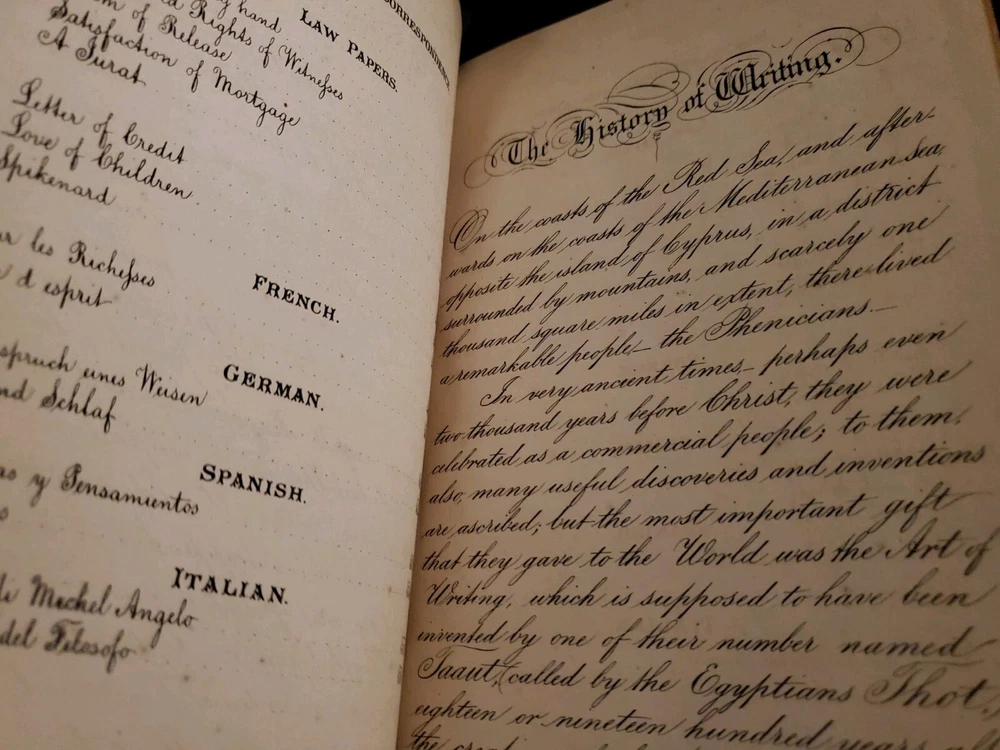 CORRESPONDENCE
LAW PAPERS.
hand
of Release
Rights of Witneſses
Satisfaction of Mortgage
A Jurat
Letter of Credit
Love of Children
Spikenard
FRENCH.
les Richeſses
d'esprit
GERMAN.
spruch eines Weisen
Schlaf
SPANISH.
y Pensamientos
ITALIAN.
di Michel Angelo
del Filosofo
The History of Writing.
On the coasts of the Red Sea, and after-
wards on the coasts of the Mediterranean Sea,
opposite the island of Cyprus, in a district
surrounded by mountains, and scarcely one
thousand square miles in extent, there lived
a remarkable people — the Phenicians. —
In very ancient times — perhaps even
two thousand years before Christ, they were
celebrated as a commercial people; to them,
also, many useful discoveries and inventions
are ascribed; but the most important gift
that they gave to the World was the Art of
Writing, which is supposed to have been
invented by one of their number named
Taaut, (called by the Egyptians Thot,)
eighteen or nineteen hundred years
the